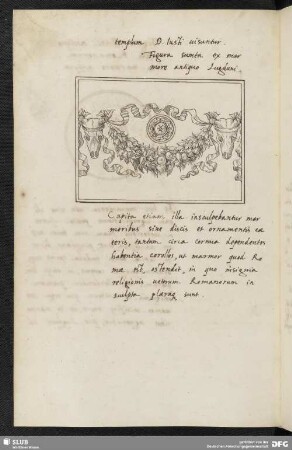 templum D. Justi uisuntur.
Figura sumta ex mar
more antiquo Lugduni.
Capita etiam illa insculpebantur mar
moribus sine discis et ornamentis ca
teris, tantum circa cornua dependentes
habentia corollas, ut marmor quod Ro
mæ est ostendit, in quo insignia
religionis ueterum Romanorum in
sculpta sunt.
SLUB
Wir führen Wissen.
gefördert von der
Deutschen Forschungsgemeinschaft
DFG